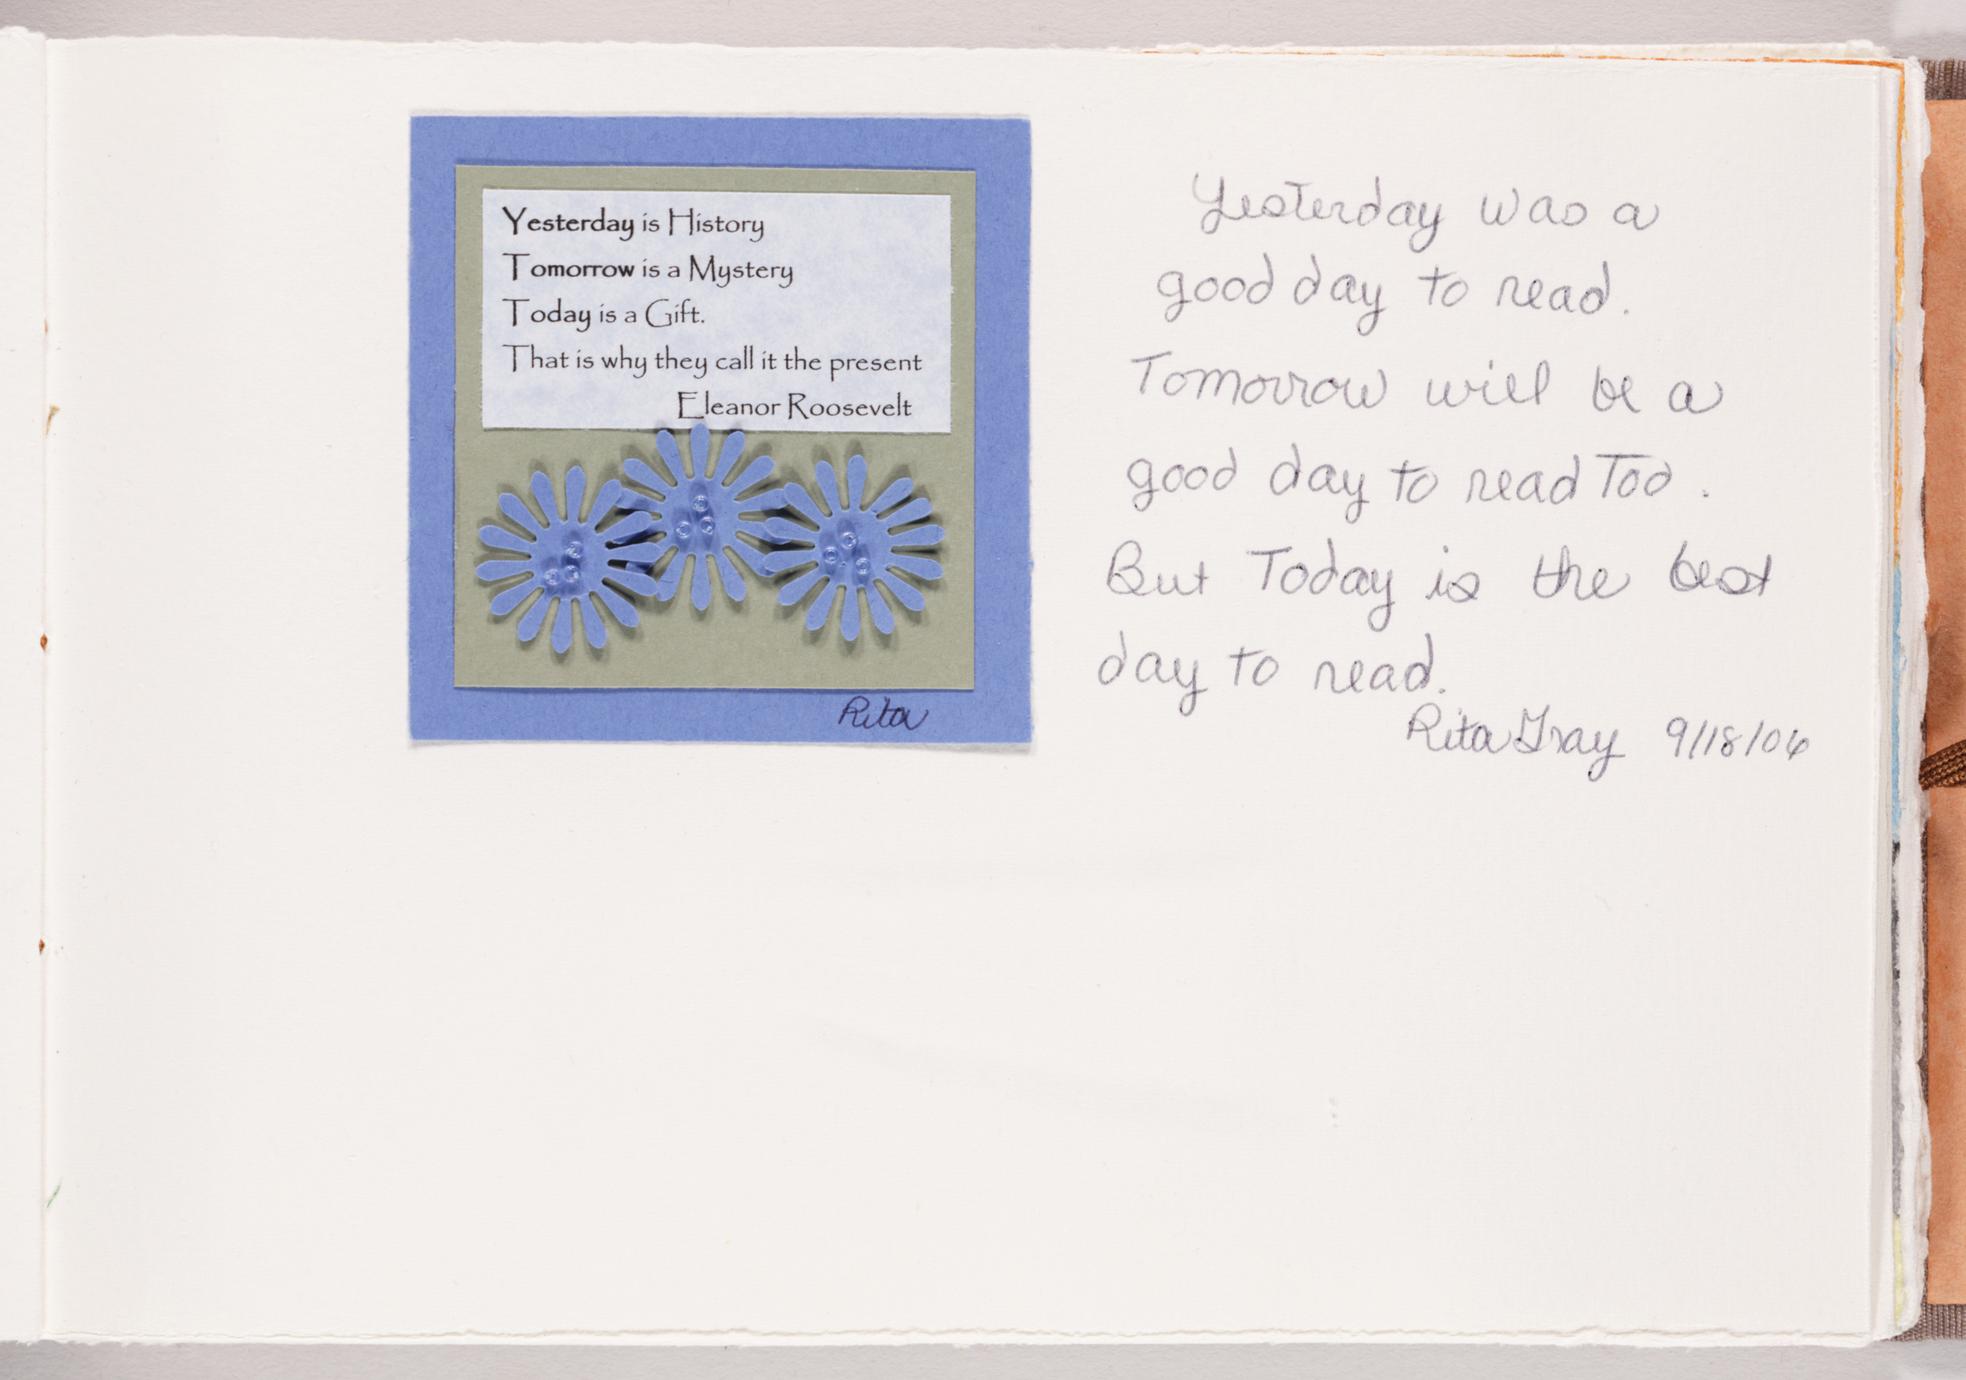 Yesterday is History
Tomorrow is a Mystery
Today is a Gift.
That is why they call it the present
Eleanor Roosevelt
Rita
Yesterday was a
good day to read.
Tomorrow will be a
good day to read Too.
But Today is the best
day to read.
Rita Gray 9/18/06